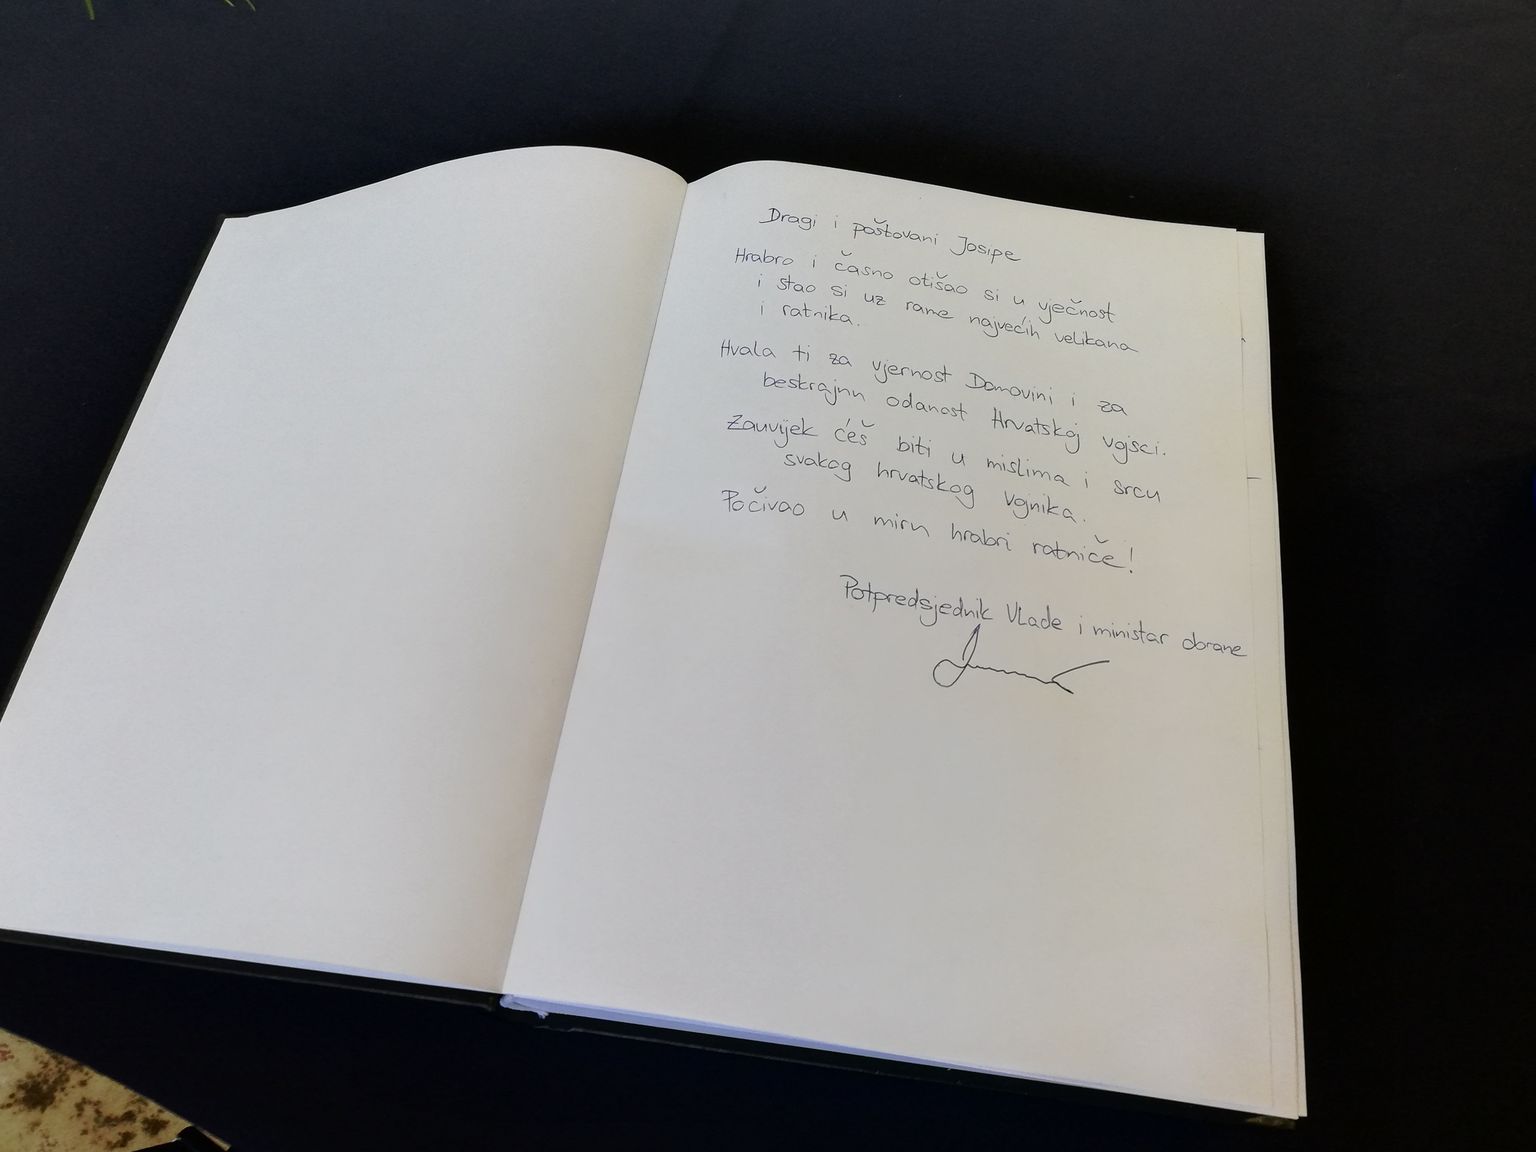 Dragi i poštovani Josipe
Hrabro i časno otišao si u vječnost
i stao si uz rame najvećih velikana
i ratnika.
Hvala ti za vjernost Domovini i za
beskrajnu odanost Hrvatskoj vojsci.
Zauvijek ćeš biti u mislima i srcu
svakog hrvatskog vojnika.
Počivao u miru hrabri ratniče!
Potpredsjednik Vlade i ministar obrane